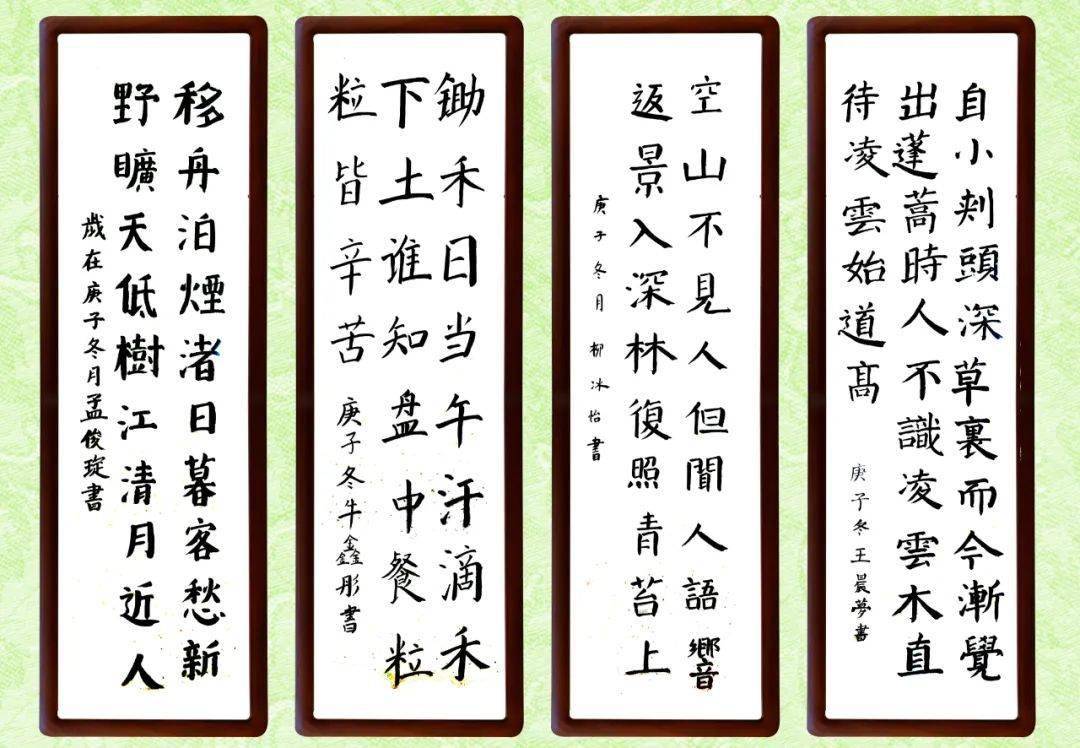 自小刾頭深草裏而今漸覺
出蓬蒿時人不識凌雲木直
待凌雲始道髙
庚子冬王晨夢書
空山不見人但聞人語響
返景入深林復照青苔上
庚子冬月柳冰怡書
锄禾日当午汗滴禾
下土谁知盘中餐粒
粒皆辛苦
庚子冬牛鑫彤書
移舟泊煙渚日暮客愁新
野曠天低樹江清月近人
歲在庚子冬月孟俊琔書